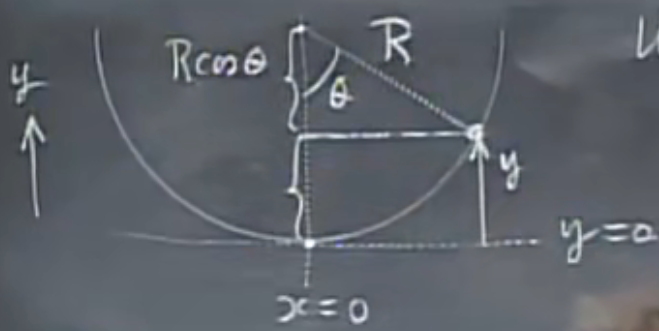 R
Rcosθ
y
θ
y
y=0
x=0